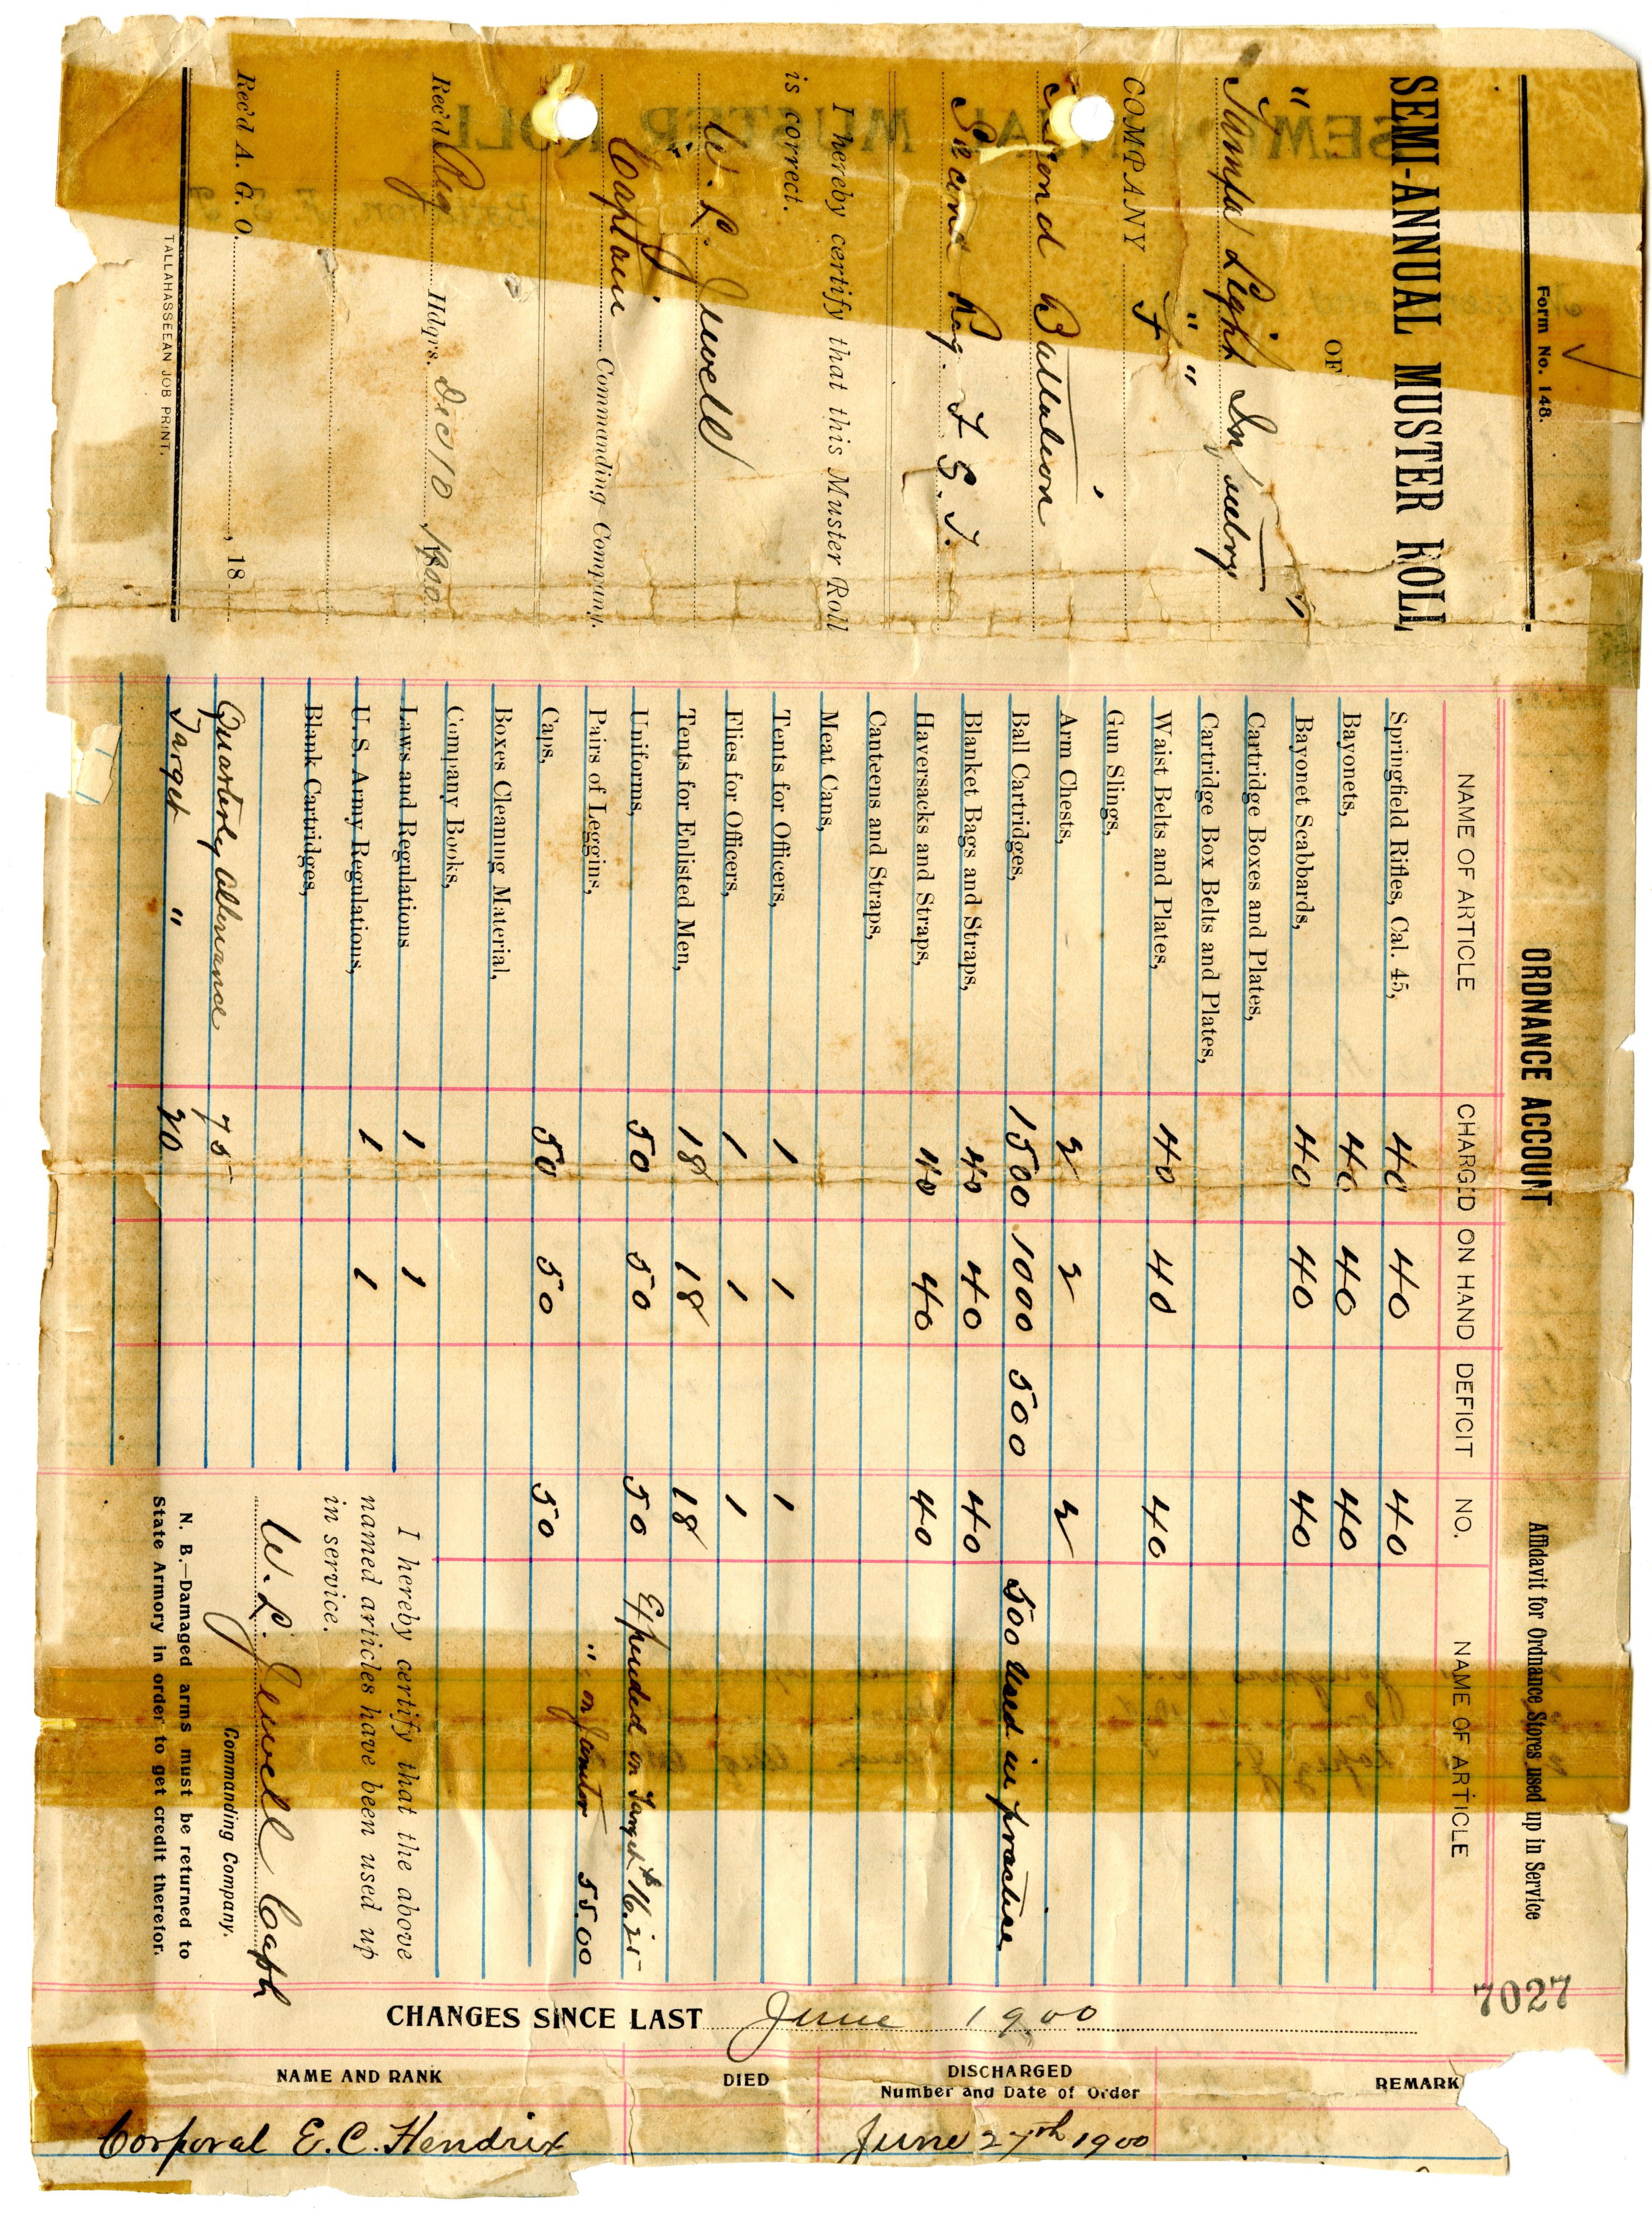 Form No. 148.
SEMI-ANNUAL MUSTER ROLL
OF
" " "
Tampa Light Infantry
COMPANY F
Second Battalion
Second Reg. F. S. T.
I hereby certify that this Muster Roll
is correct.
W. L. Jewell
Captain Commanding Company.
Rec'd Reg. Hdqrs. Dec 10, 1900
Rec'd A. G. O. , 18
TALLAHASSEEAN JOB PRINT.
ORDNANCE ACCOUNT
Affidavit for Ordnance Stores used up in Service
NAME OF ARTICLE CHARG'D ON HAND DEFICIT NO. NAME OF ARTICLE
Springfield Rifles, Cal. 45, 40 40 40
Bayonets, 40 40 40
Bayonet Scabbards, 40 40 40
Cartridge Boxes and Plates,
Cartridge Box Belts and Plates,
Waist Belts and Plates, 40 40 40
Gun Slings,
Arm Chests, 2 2 2
Ball Cartridges, 1500 1000 500 500 Used in practice
Blanket Bags and Straps, 40 40 40
Haversacks and Straps, 40 40 40
Canteens and Straps,
Meat Cans,
Tents for Officers, 1 1 1
Flies for Officers, 1 1 1
Tents for Enlisted Men, 18 18 18
Uniforms, 50 50 50 Expended on Target $16.25
Pairs of Leggins, " on Janitor 55.00
Caps, 50 50 50
Boxes Cleaning Material,
Company Books,
Laws and Regulations 1 1
U. S. Army Regulations, 1 1
Blank Cartridges,
Quarterly Allowance 75
Target " 20
I hereby certify that the above
named articles have been used up
in service.
W. L. Jewell Capt
Commanding Company.
N. B.—Damaged arms must be returned to
State Armory in order to get credit therefor.
7027
CHANGES SINCE LAST June 1900
NAME AND RANK DIED DISCHARGED Number and Date of Order REMARK
Corporal E. C. Hendrix June 27th 1900